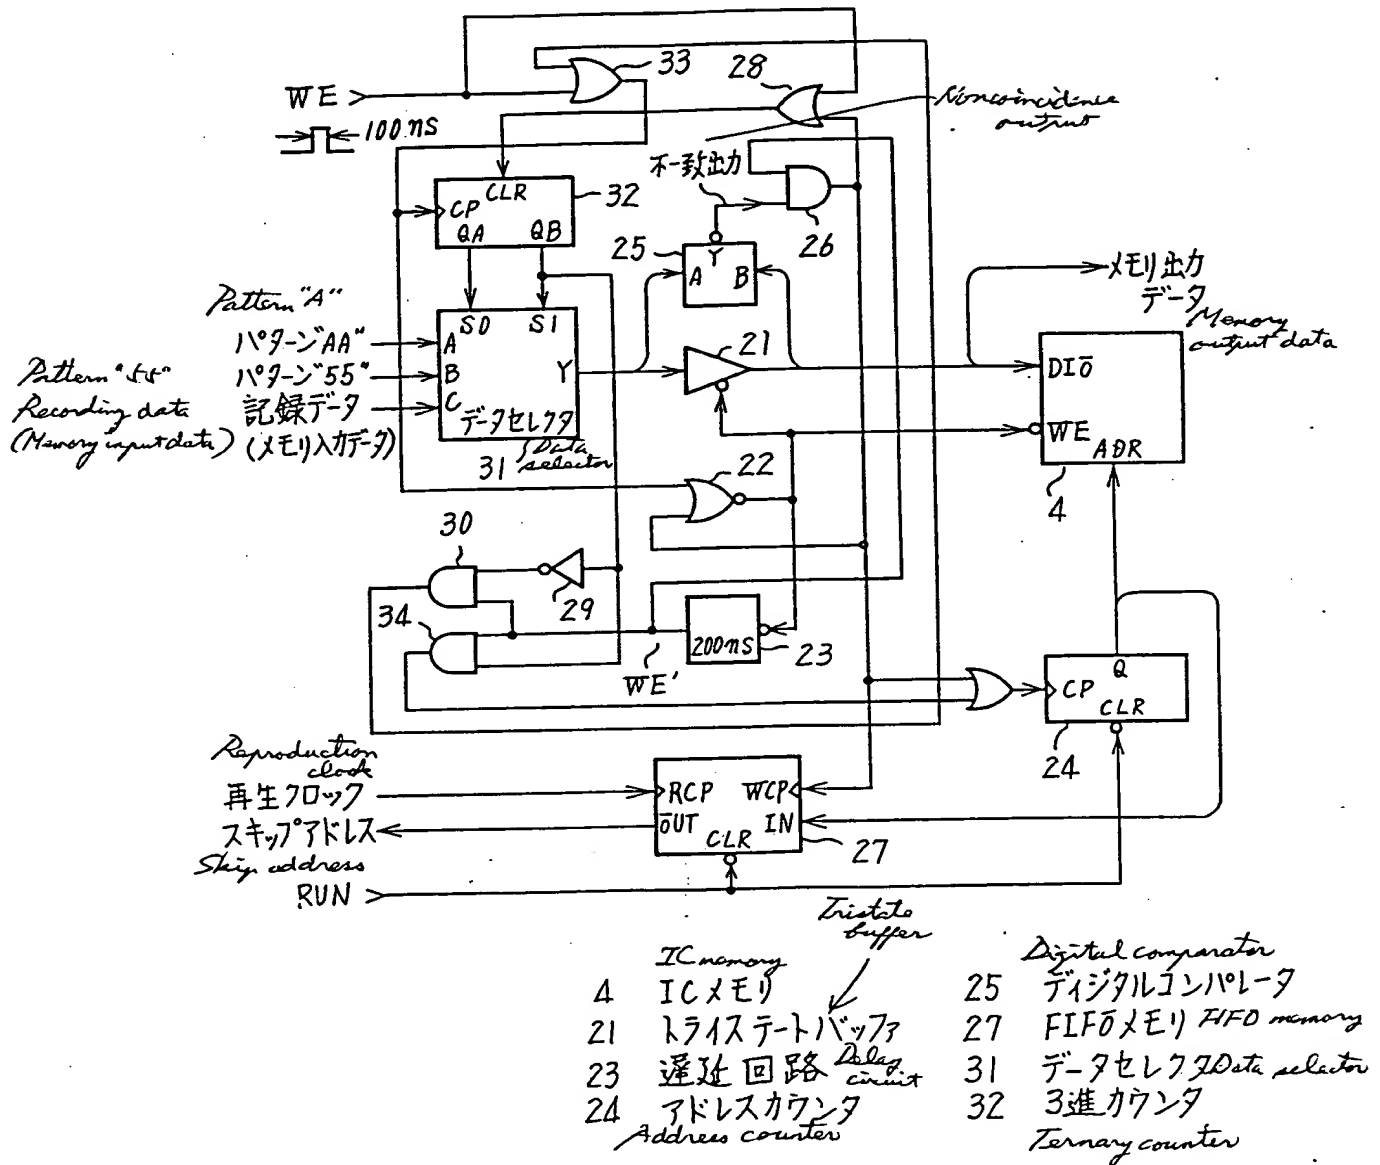 33
28
WE
100 ns
Noncoincidence
output
不一致出力
CLR
32
CP
QA QB
26
25
Y
A B
メモリ出力
データ
Memory
output data
Pattern "A"
パターン"AA"
Pattern "55"
パターン"55"
Recording data
記録データ
(Memory input data)
(メモリ入力データ)
S0 S1
A
B
C
Y
データセレクタ
31
Data
selector
21
DIO
WE
ADR
4
22
30
29
34
200ns
23
WE'
Q
CP
CLR
24
Reproduction
clock
再生クロック
スキップアドレス
Skip address
RUN
RCP WCP
OUT IN
CLR
27
Tristate
buffer
IC memory
4 ICメモリ
21 トライステートバッファ
23 遅延回路 Delay
circuit
24 アドレスカウンタ
Address counter
Digital comparator
25 ディジタルコンパレータ
27 FIFOメモリ FIFO memory
31 データセレクタ Data selector
32 3進カウンタ
Ternary counter